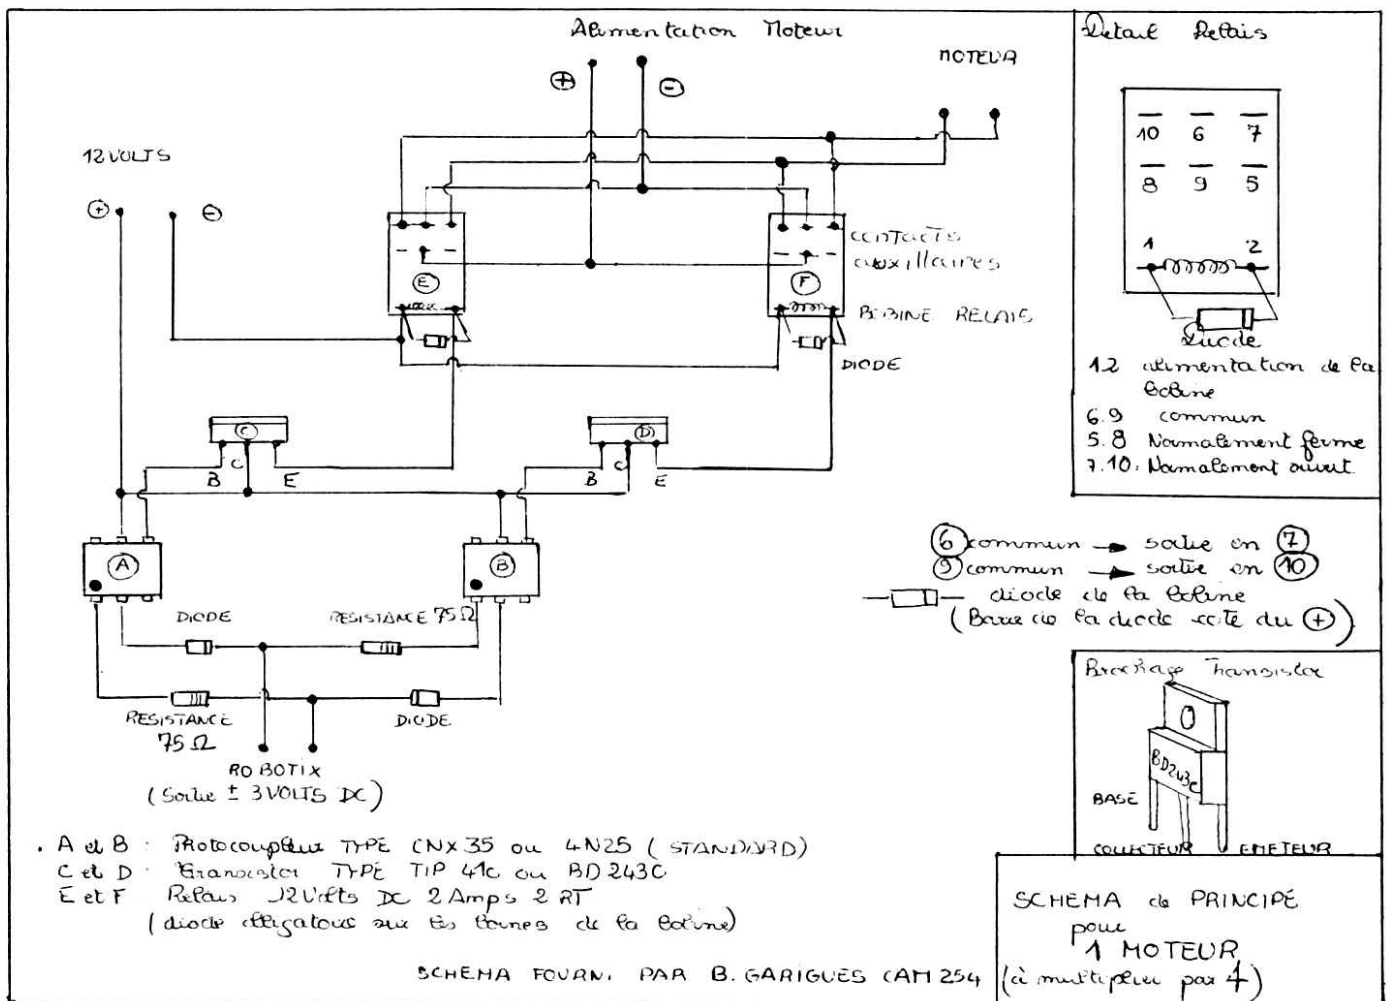 Alimentation Moteur
+
-
MOTEUR
12 VOLTS
+
-
E
F
CONTACTS
auxillaires
BOBINE RELAIS
DIODE
C
D
B
C
E
B
C
E
A
B
DIODE
RESISTANCE 75Ω
RESISTANCE
75 Ω
DIODE
ROBOTIX
(Sortie ± 3 VOLTS DC)
. A et B : Photocoupleur TYPE CNX 35 ou 4N25 (STANDARD)
C et D : Transistor TYPE TIP 41c ou BD 243C
E et F Relais 12 Volts DC 2 Amps 2 RT
(diode obligatoire sur les bornes de la bobine)
SCHEMA FOURNI PAR B. GARIGUES CAM 254
Detail Relais
10 6 7
8 9 5
1 2
Diode
12 alimentation de la
bobine
6.9 commun
5.8 Normalement ferme
7.10. Normalement ouvert
6 commun → sortie en 7
9 commun → sortie en 10
diode de la bobine
(Barre de la diode coté du +)
Brochage Transistor
BD243C
BASE
COLLECTEUR
EMETEUR
SCHEMA de PRINCIPE
pour
1 MOTEUR
(à multiplier par 4)